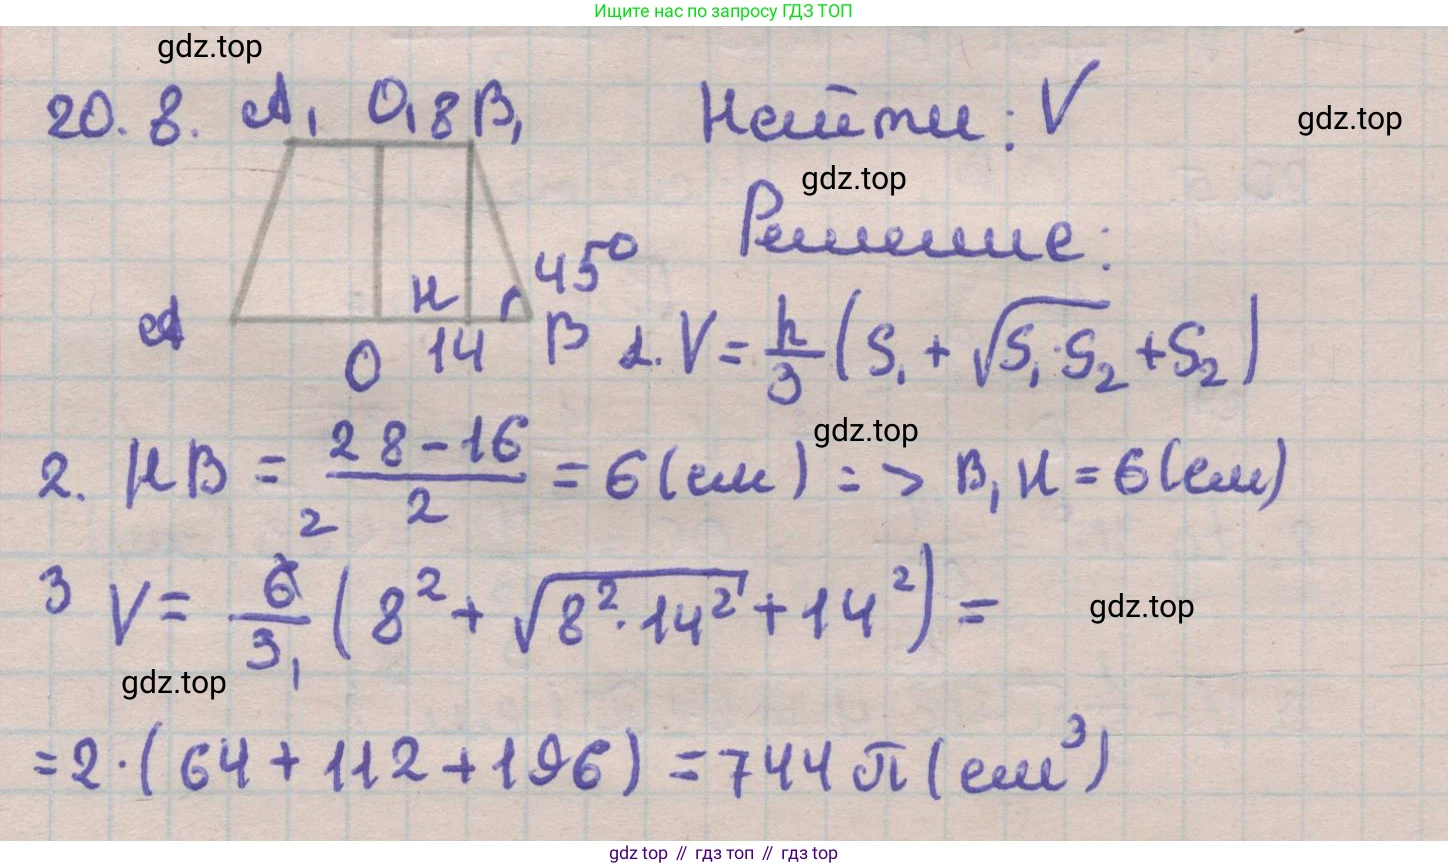 Ищите нас по запросу ГДЗ ТОП
gdz.top
20. 8. A₁ O₁ 8 B₁ Найти: V
gdz.top
gdz.top
Решение:
45°
H
A O 14 B 1. V = h/3 (S₁ + √(S₁·S₂) + S₂)
gdz.top
2. HB = (28-16)/2 = 6 (см) => B₁H = 6 (см)
2
3 V = 6/3 (8² + √(8²·14²) + 14²) =
1
gdz.top
gdz.top
= 2·(64 + 112 + 196) = 744 π (см³)
gdz top // гдз топ // гдз top